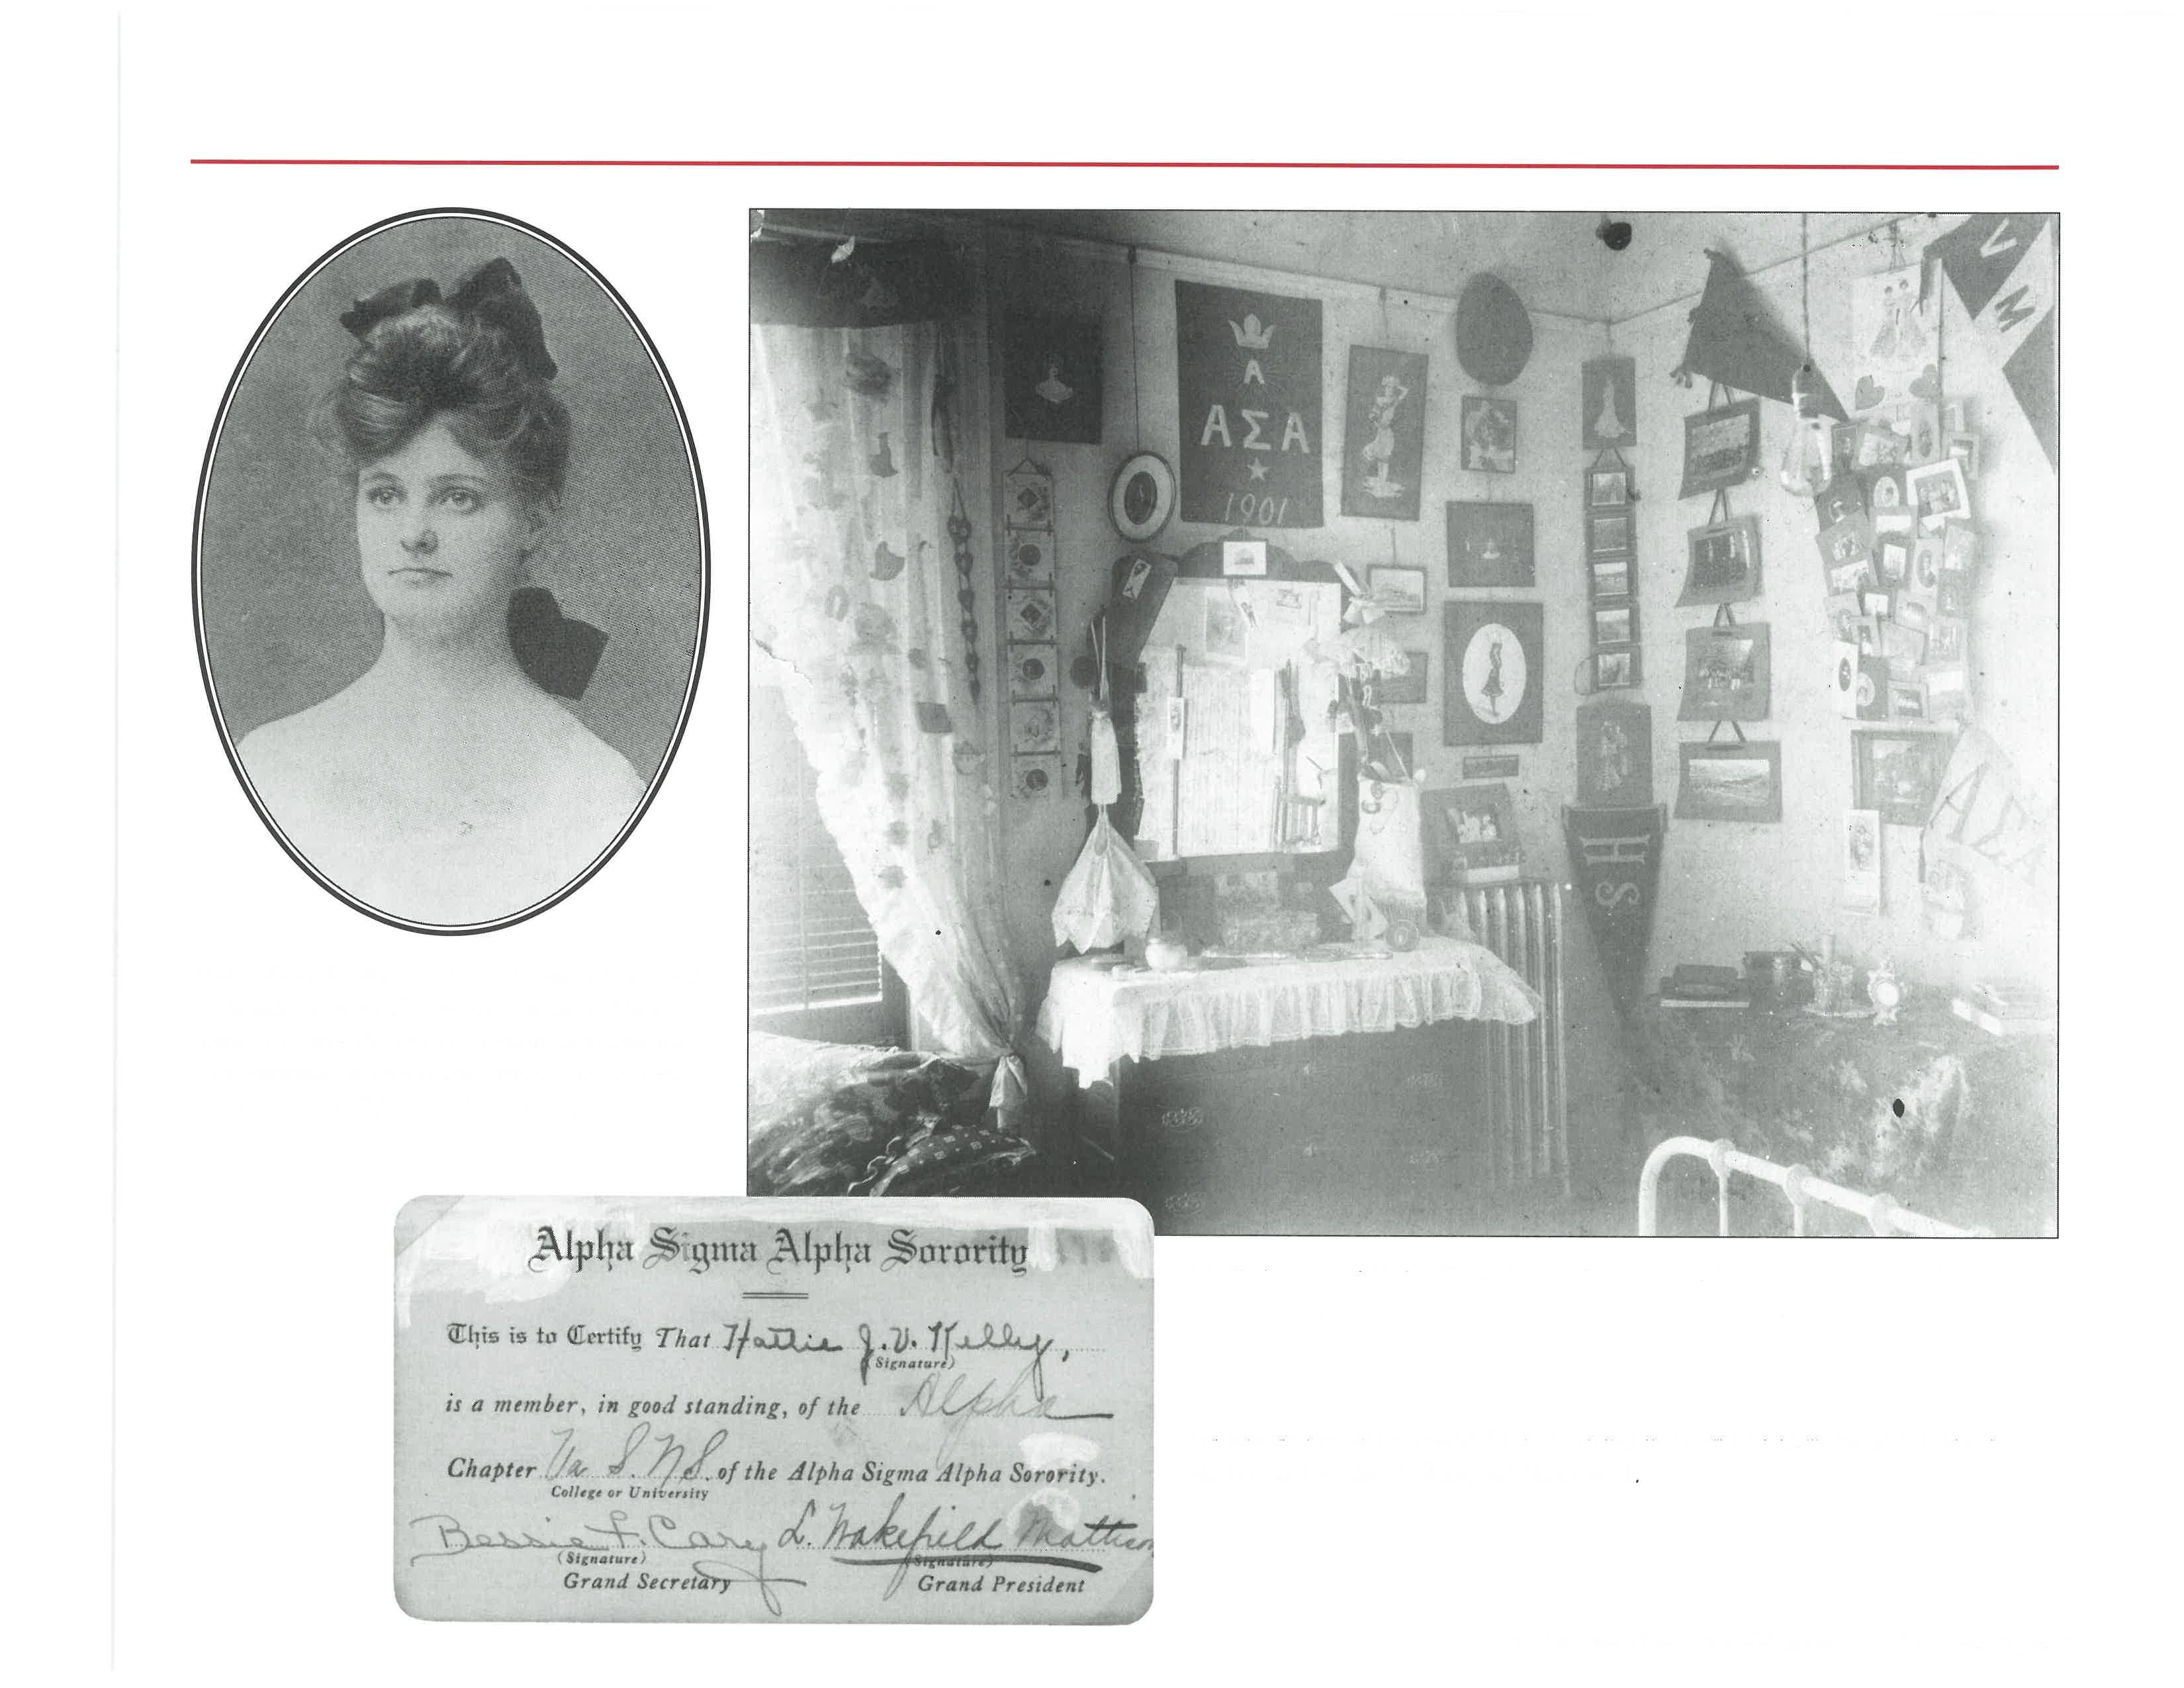 A
ΑΣΑ
1901
V
M
ΑΣΑ
HS
Alpha Sigma Alpha Sorority
This is to Certify That Hattie J.V. Kelly,
(Signature)
is a member, in good standing, of the Alpha
Chapter Va S.N.S. of the Alpha Sigma Alpha Sorority.
College or University
Bessie F. Cary L. Wakefield Mattison
(Signature) (Signature)
Grand Secretary Grand President